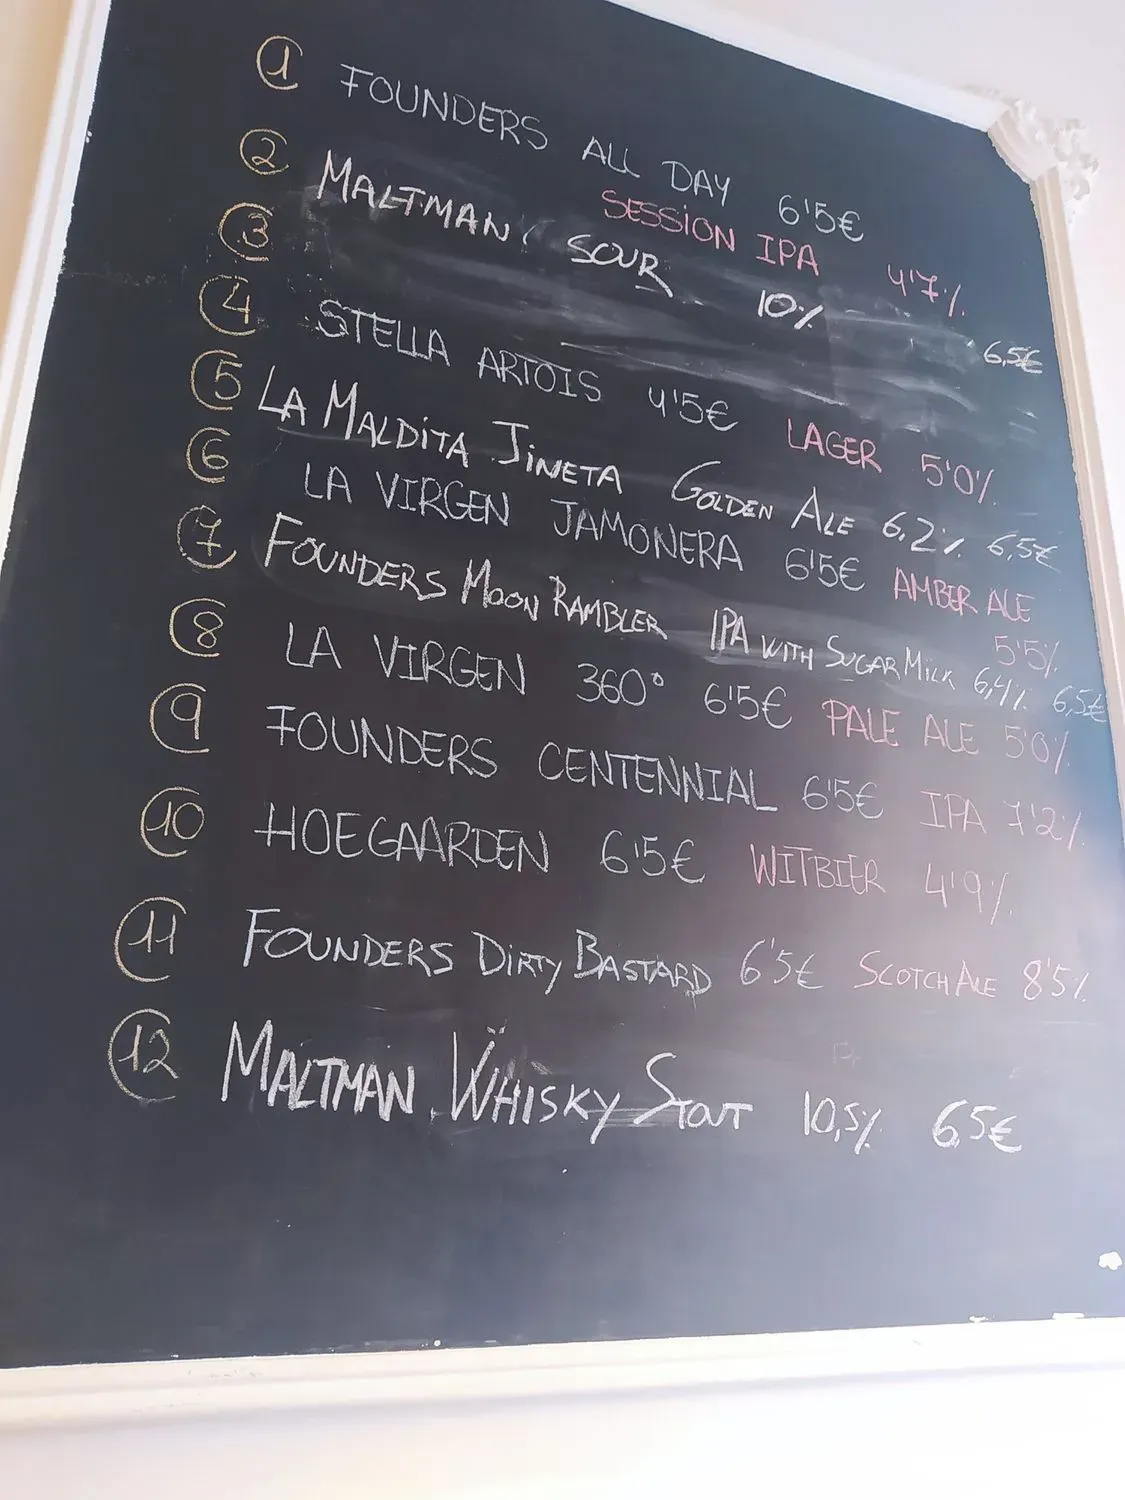 1 FOUNDERS ALL DAY 6'5€
SESSION IPA 4'7%
2 MALTMAN SOUR 10% 6,5€
3
4 STELLA ARTOIS 4'5€ LAGER 5'0%
5 LA MALDITA JINETA GOLDEN ALE 6,2% 6,5€
6 LA VIRGEN JAMONERA 6'5€ AMBER ALE
5'5%
7 FOUNDERS MOON RAMBLER IPA WITH SUGAR MILK 6,4% 6,5€
8 LA VIRGEN 360° 6'5€ PALE ALE 5'0%
9 FOUNDERS CENTENNIAL 6'5€ IPA 7'2%
10 HOEGAARDEN 6'5€ WITBIER 4'9%
11 FOUNDERS DIRTY BASTARD 6'5€ SCOTCH ALE 8'5%
12 MALTMAN WHISKY STOUT 10,5% 6,5€